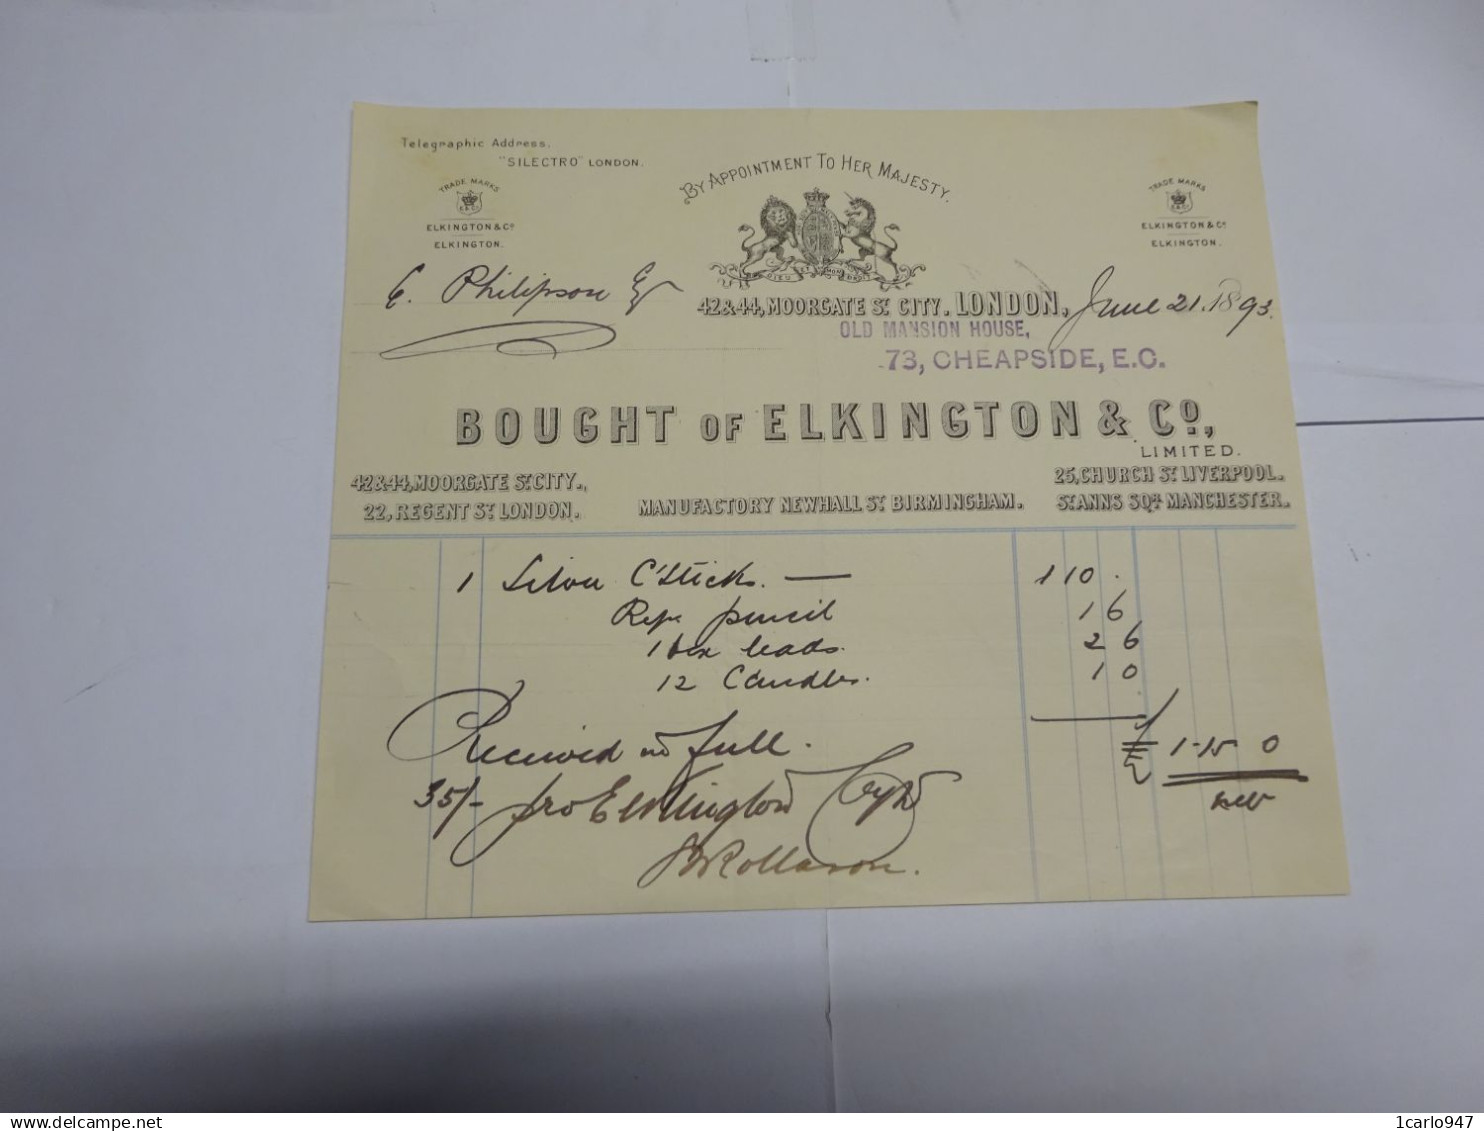 Telegraphic Address.
"SILECTRO" LONDON.
BY APPOINTMENT TO HER MAJESTY.
TRADE MARKS
E.&C?
ELKINGTON & Co
ELKINGTON.
TRADE MARKS
ELKINGTON & Co
ELKINGTON.
E. Philipson Esq
42 & 44, MOORGATE ST CITY. LONDON, June 21. 1893.
OLD MANSION HOUSE,
73, CHEAPSIDE, E.C.
BOUGHT OF ELKINGTON & Co.,
LIMITED.
42 & 44, MOORGATE ST CITY.,
22, REGENT ST LONDON.
MANUFACTORY NEWHALL ST BIRMINGHAM.
25, CHURCH ST LIVERPOOL.
ST ANNS SQR MANCHESTER.
1 Silver C'stick. — 1 10 .
Repr pencil 1 6
1 box leads. 2 6
12 Candles. 1 0
£ 1-15 0
Received in full.
35/- pro Elkington
Rollason.
1carlo947
delcampe.net